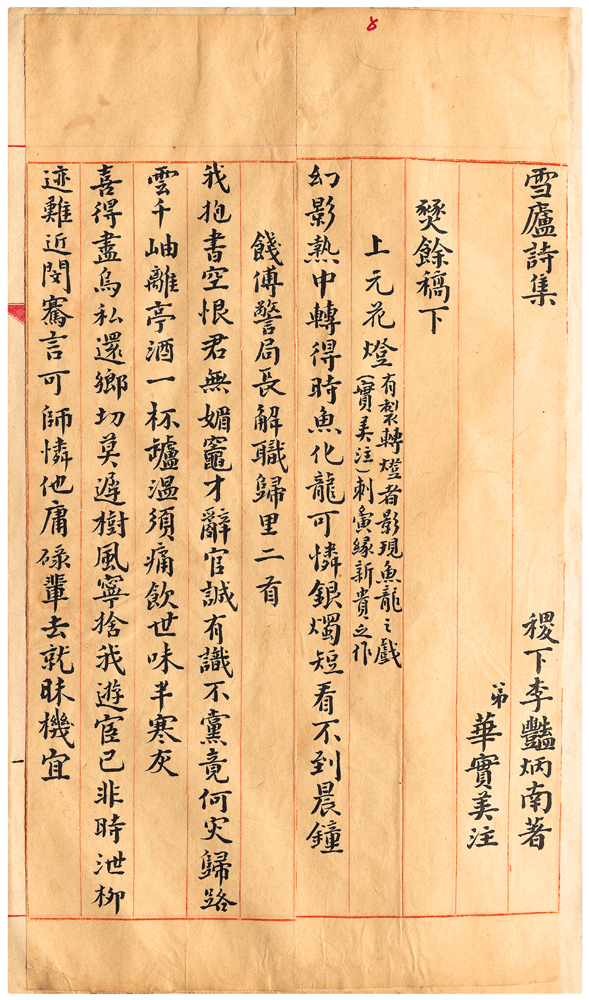 雪廬詩集
稷下李豔炳南著
弟
華實美注
焚餘稿下
上元花燈
有製轉燈者影現魚龍之戲
(實美注)刺夤緣新貴之作
幻影熱中轉得時魚化龍可憐銀燭短看不到晨鐘
餞傅警局長解職歸里二首
我抱書空恨君無媚竈才辭官誠有識不黨竟何災歸路
雲千岫離亭酒一杯罏溫須痛飲世味半寒灰
喜得盡烏私還鄉切莫遲樹風寧捨我遊宦已非時泄柳
迹難近閔騫言可師憐他庸碌輩去就昧機宜